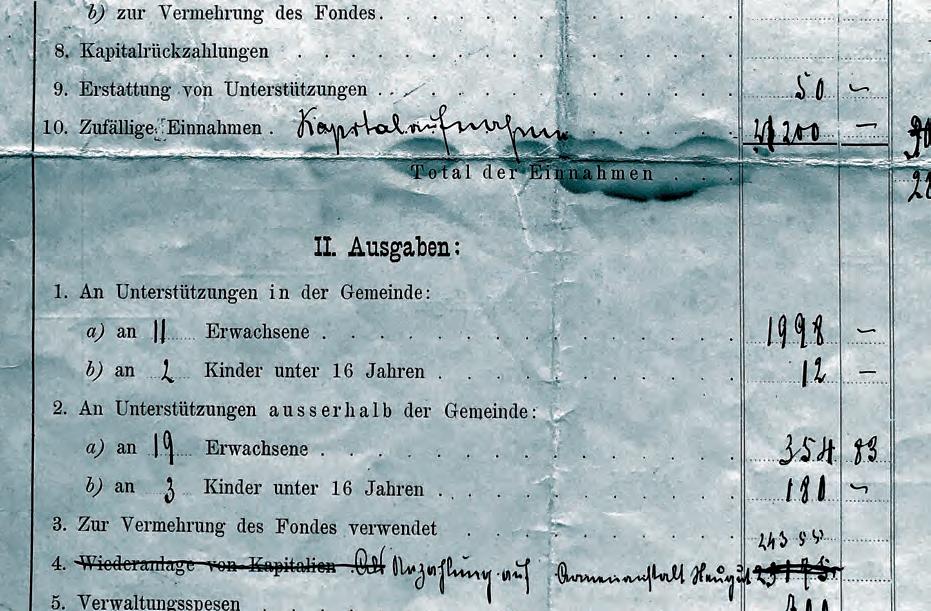 b) zur Vermehrung des Fondes.
8. Kapitalrückzahlungen
9. Erstattung von Unterstützungen 50 —
10. Zufällige Einnahmen. Kapitalaufnahmen 200 —
Total der Einnahmen
II. Ausgaben:
1. An Unterstützungen in der Gemeinde:
a) an 11 Erwachsene 1998 —
b) an 2 Kinder unter 16 Jahren 12 —
2. An Unterstützungen ausserhalb der Gemeinde:
a) an 19 Erwachsene 354 83
b) an 3 Kinder unter 16 Jahren 180 —
3. Zur Vermehrung des Fondes verwendet
4. Wiederanlage von Kapitalien Anzahlung auf Armenanstalt Neugut
5. Verwaltungsspesen